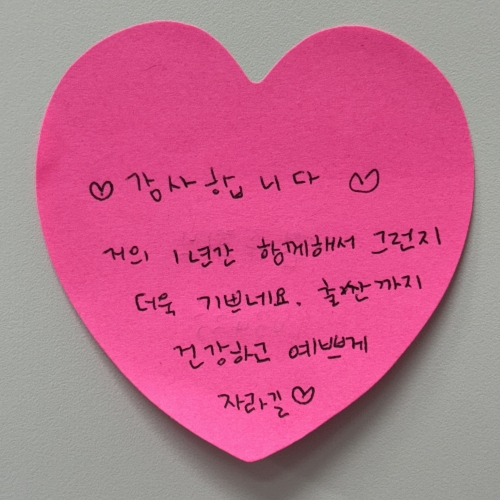 ♡ 감사합니다 ♡
거의 1년간 함께해서 그런지
더욱 기쁘네요. 출산까지
건강하고 예쁘게
자라길♡